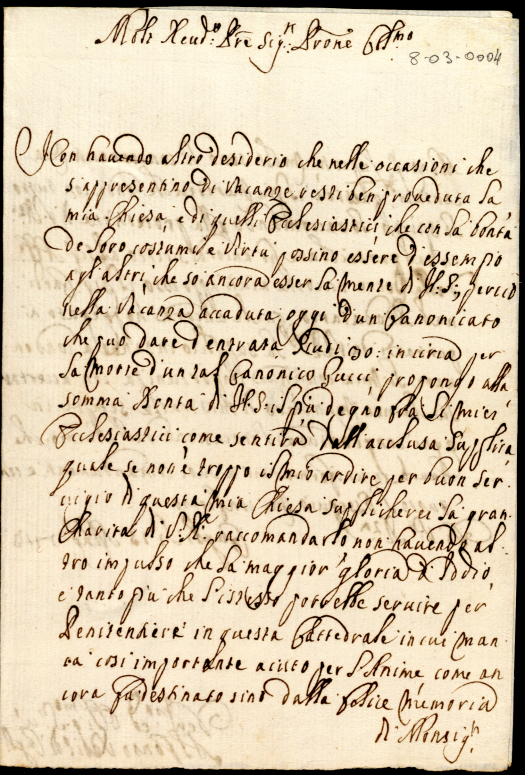 Molt Reud: Pre Sig: Prone Col:mo
8-03-0004
Non hauendo altro desiderio che nelle occasioni che
s'appresentino di Vacanze resti ben proueduta la
mia Chiesa, e di quelli Ecclesiastici, che con la bontà
de loro costumi e virtù possino essere d'essempio
agl'altri, che so ancora esser la mente di N: S:, perciò
nella vacanza accaduta oggi d'un Canonicato
che può dare d'entrata Scudi 30: in circa per
la morte d'un tal Canonico Pucci propongo alla
somma Bontà di N: S: il più degno fra li miei
Ecclesiastici come sentirà dall'acclusa supplica,
quale se non è troppo il mio ardire per buon ser
uigio di questa mia Chiesa supplicherei la gran
Charità di V: R: raccomandarlo non hauendo al
tro impulso che la maggior gloria d'Iddio,
e tanto più che l'istesso potrebbe seruire per
Penitentiere in questa Cattedrale in cui man
ca così importante aiuto per l'Anime come an
cora fu destinato sino dalla felice memoria
di Monsig:r